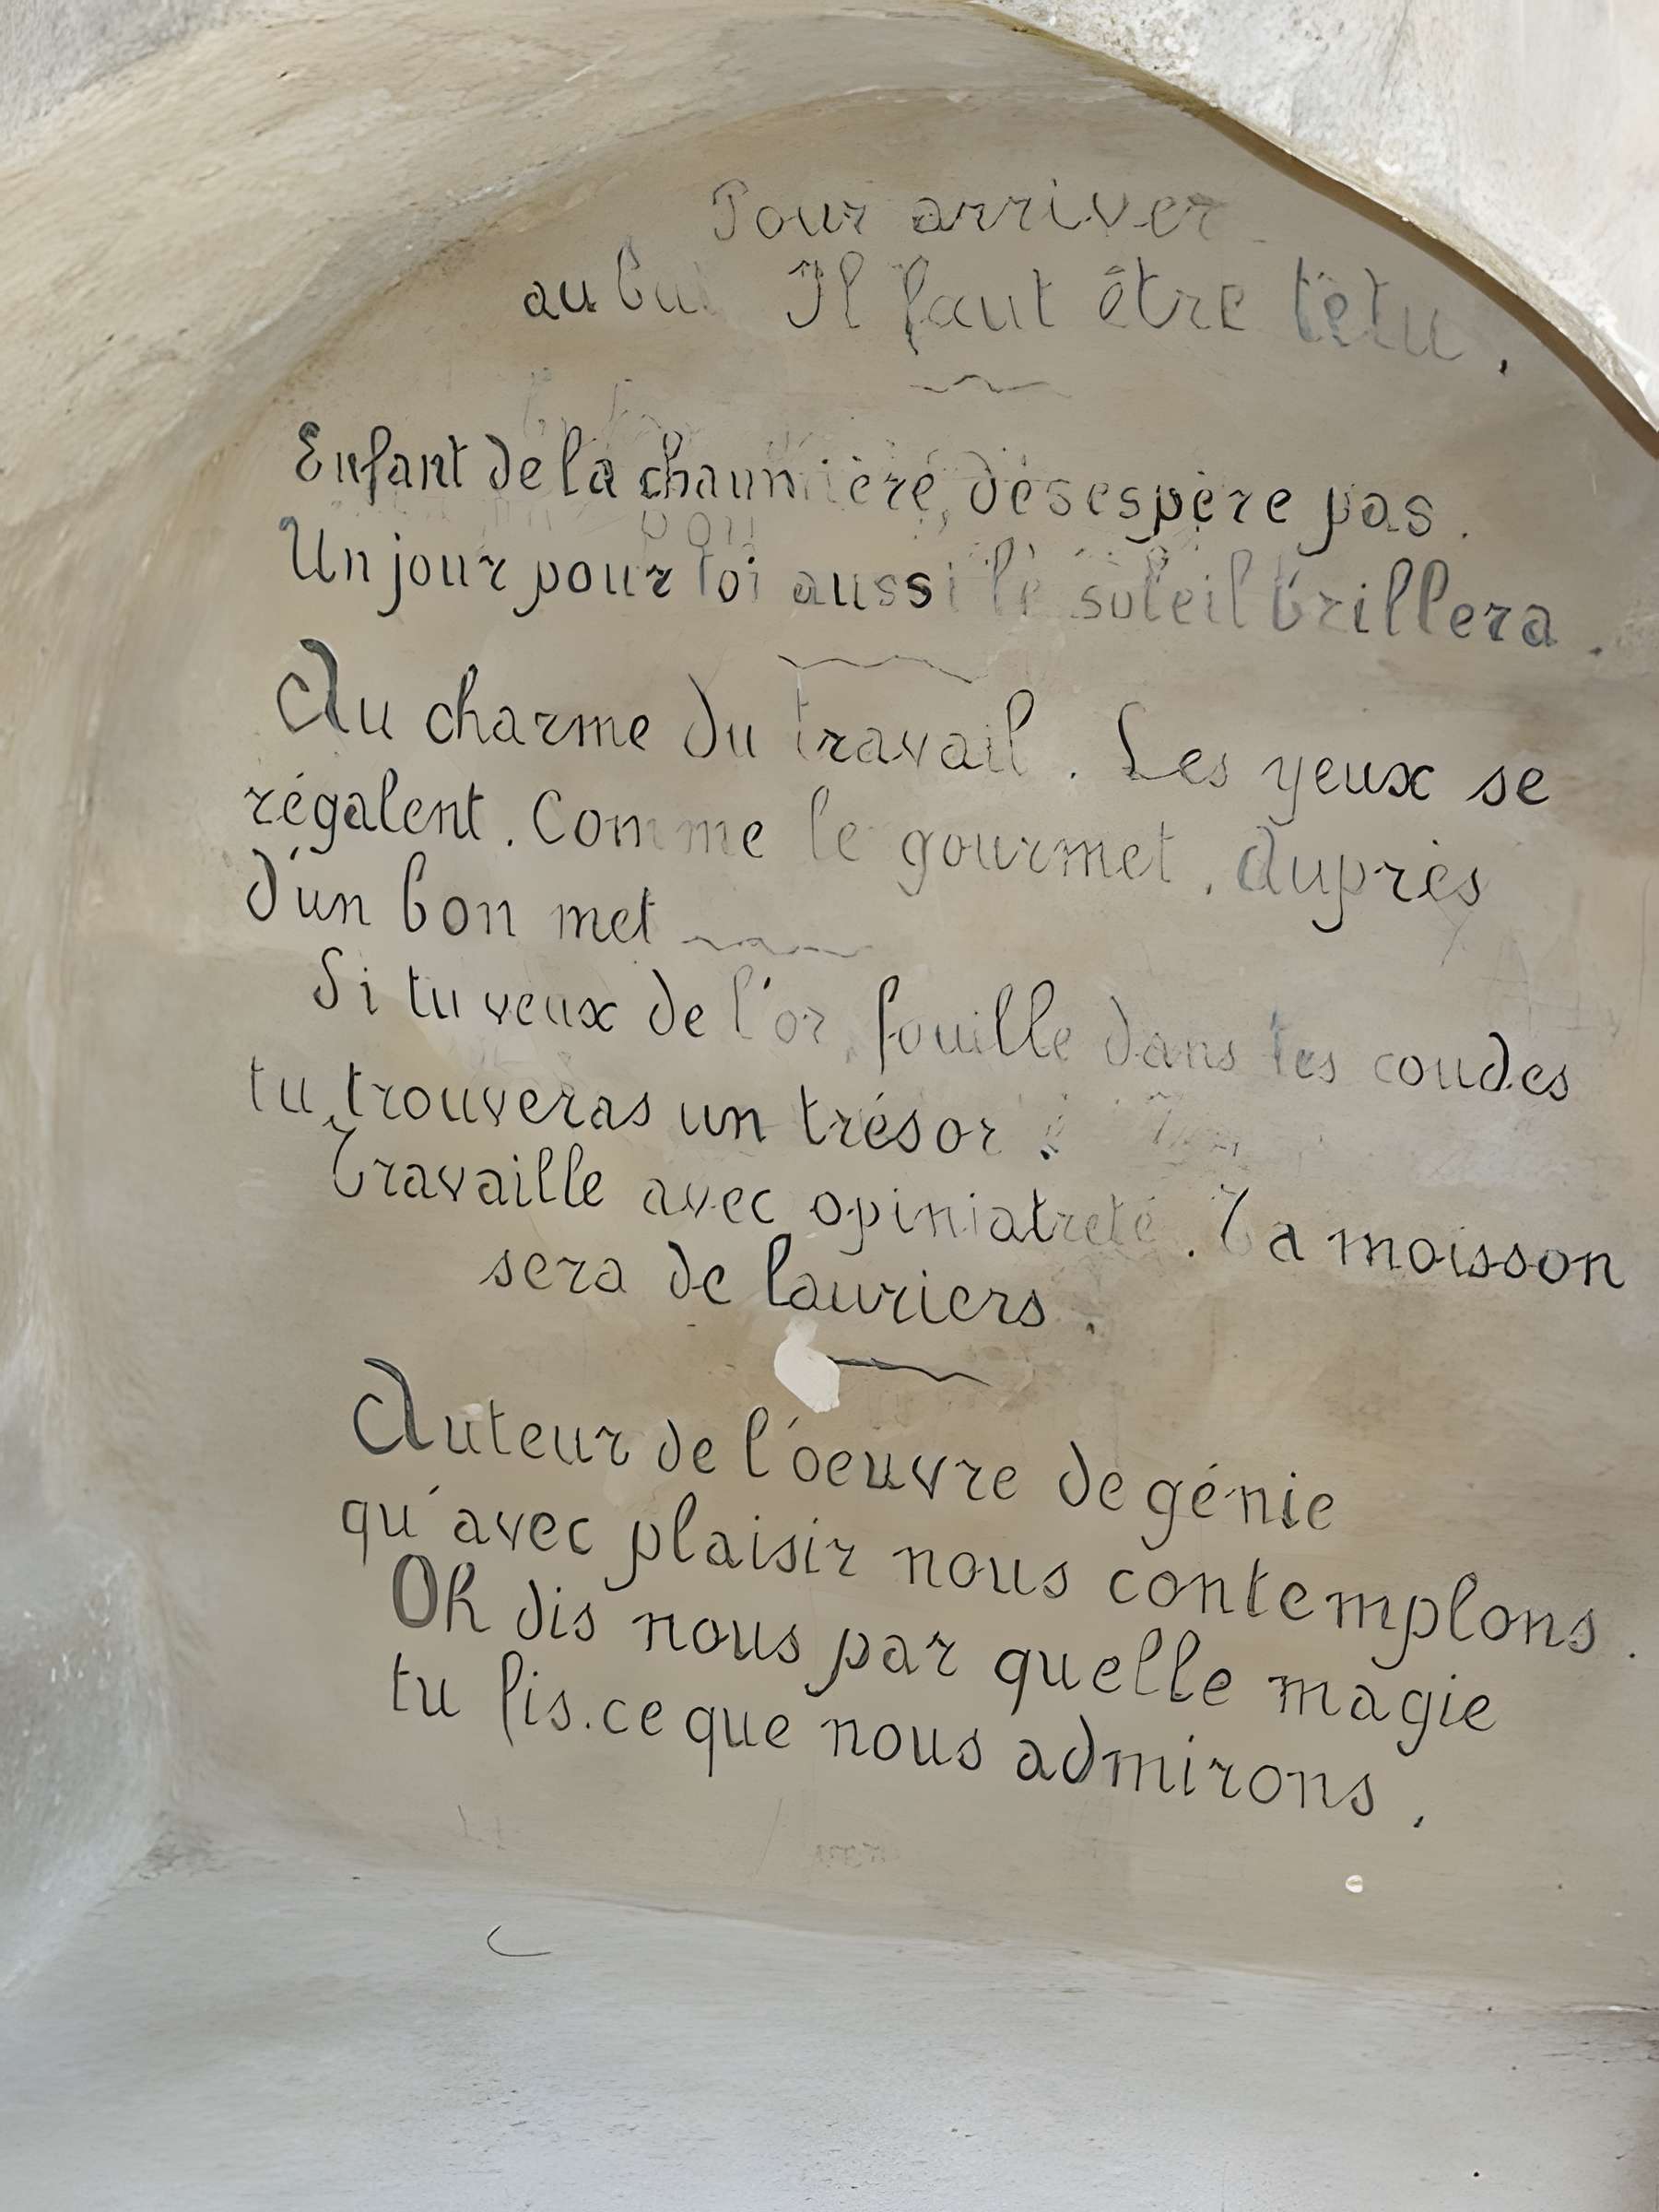 Pour arriver
au but Il faut être têtu.
Enfant de la chaumière, désespère pas.
Un jour pour toi aussi le soleil brillera.
Au charme du travail. Les yeux se
régalent. Comme le gourmet. Auprès
d'un bon met
Si tu veux de l'or, fouille dans tes coudes
tu, trouveras un trésor.
Travaille avec opiniatreté. Ta moisson
sera de lauriers.
Auteur de l'oeuvre de génie
qu'avec plaisir nous contemplons.
Oh dis nous par quelle magie
tu fis.ce que nous admirons.